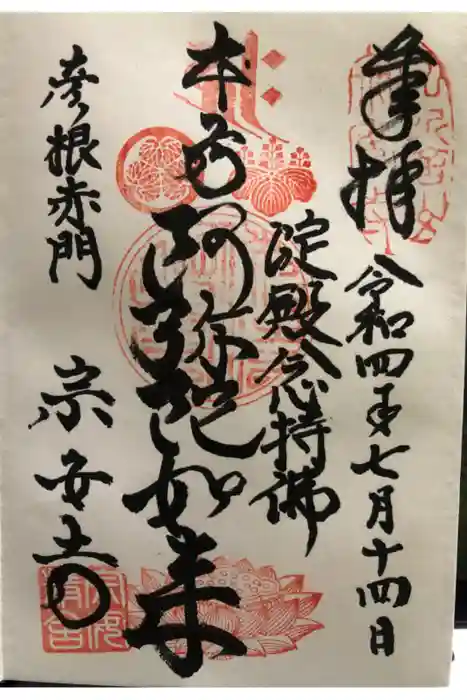 奉拝
令和四年七月十四日
淀殿念持佛
本尊阿弥陀如来
彦根赤門
宗安寺